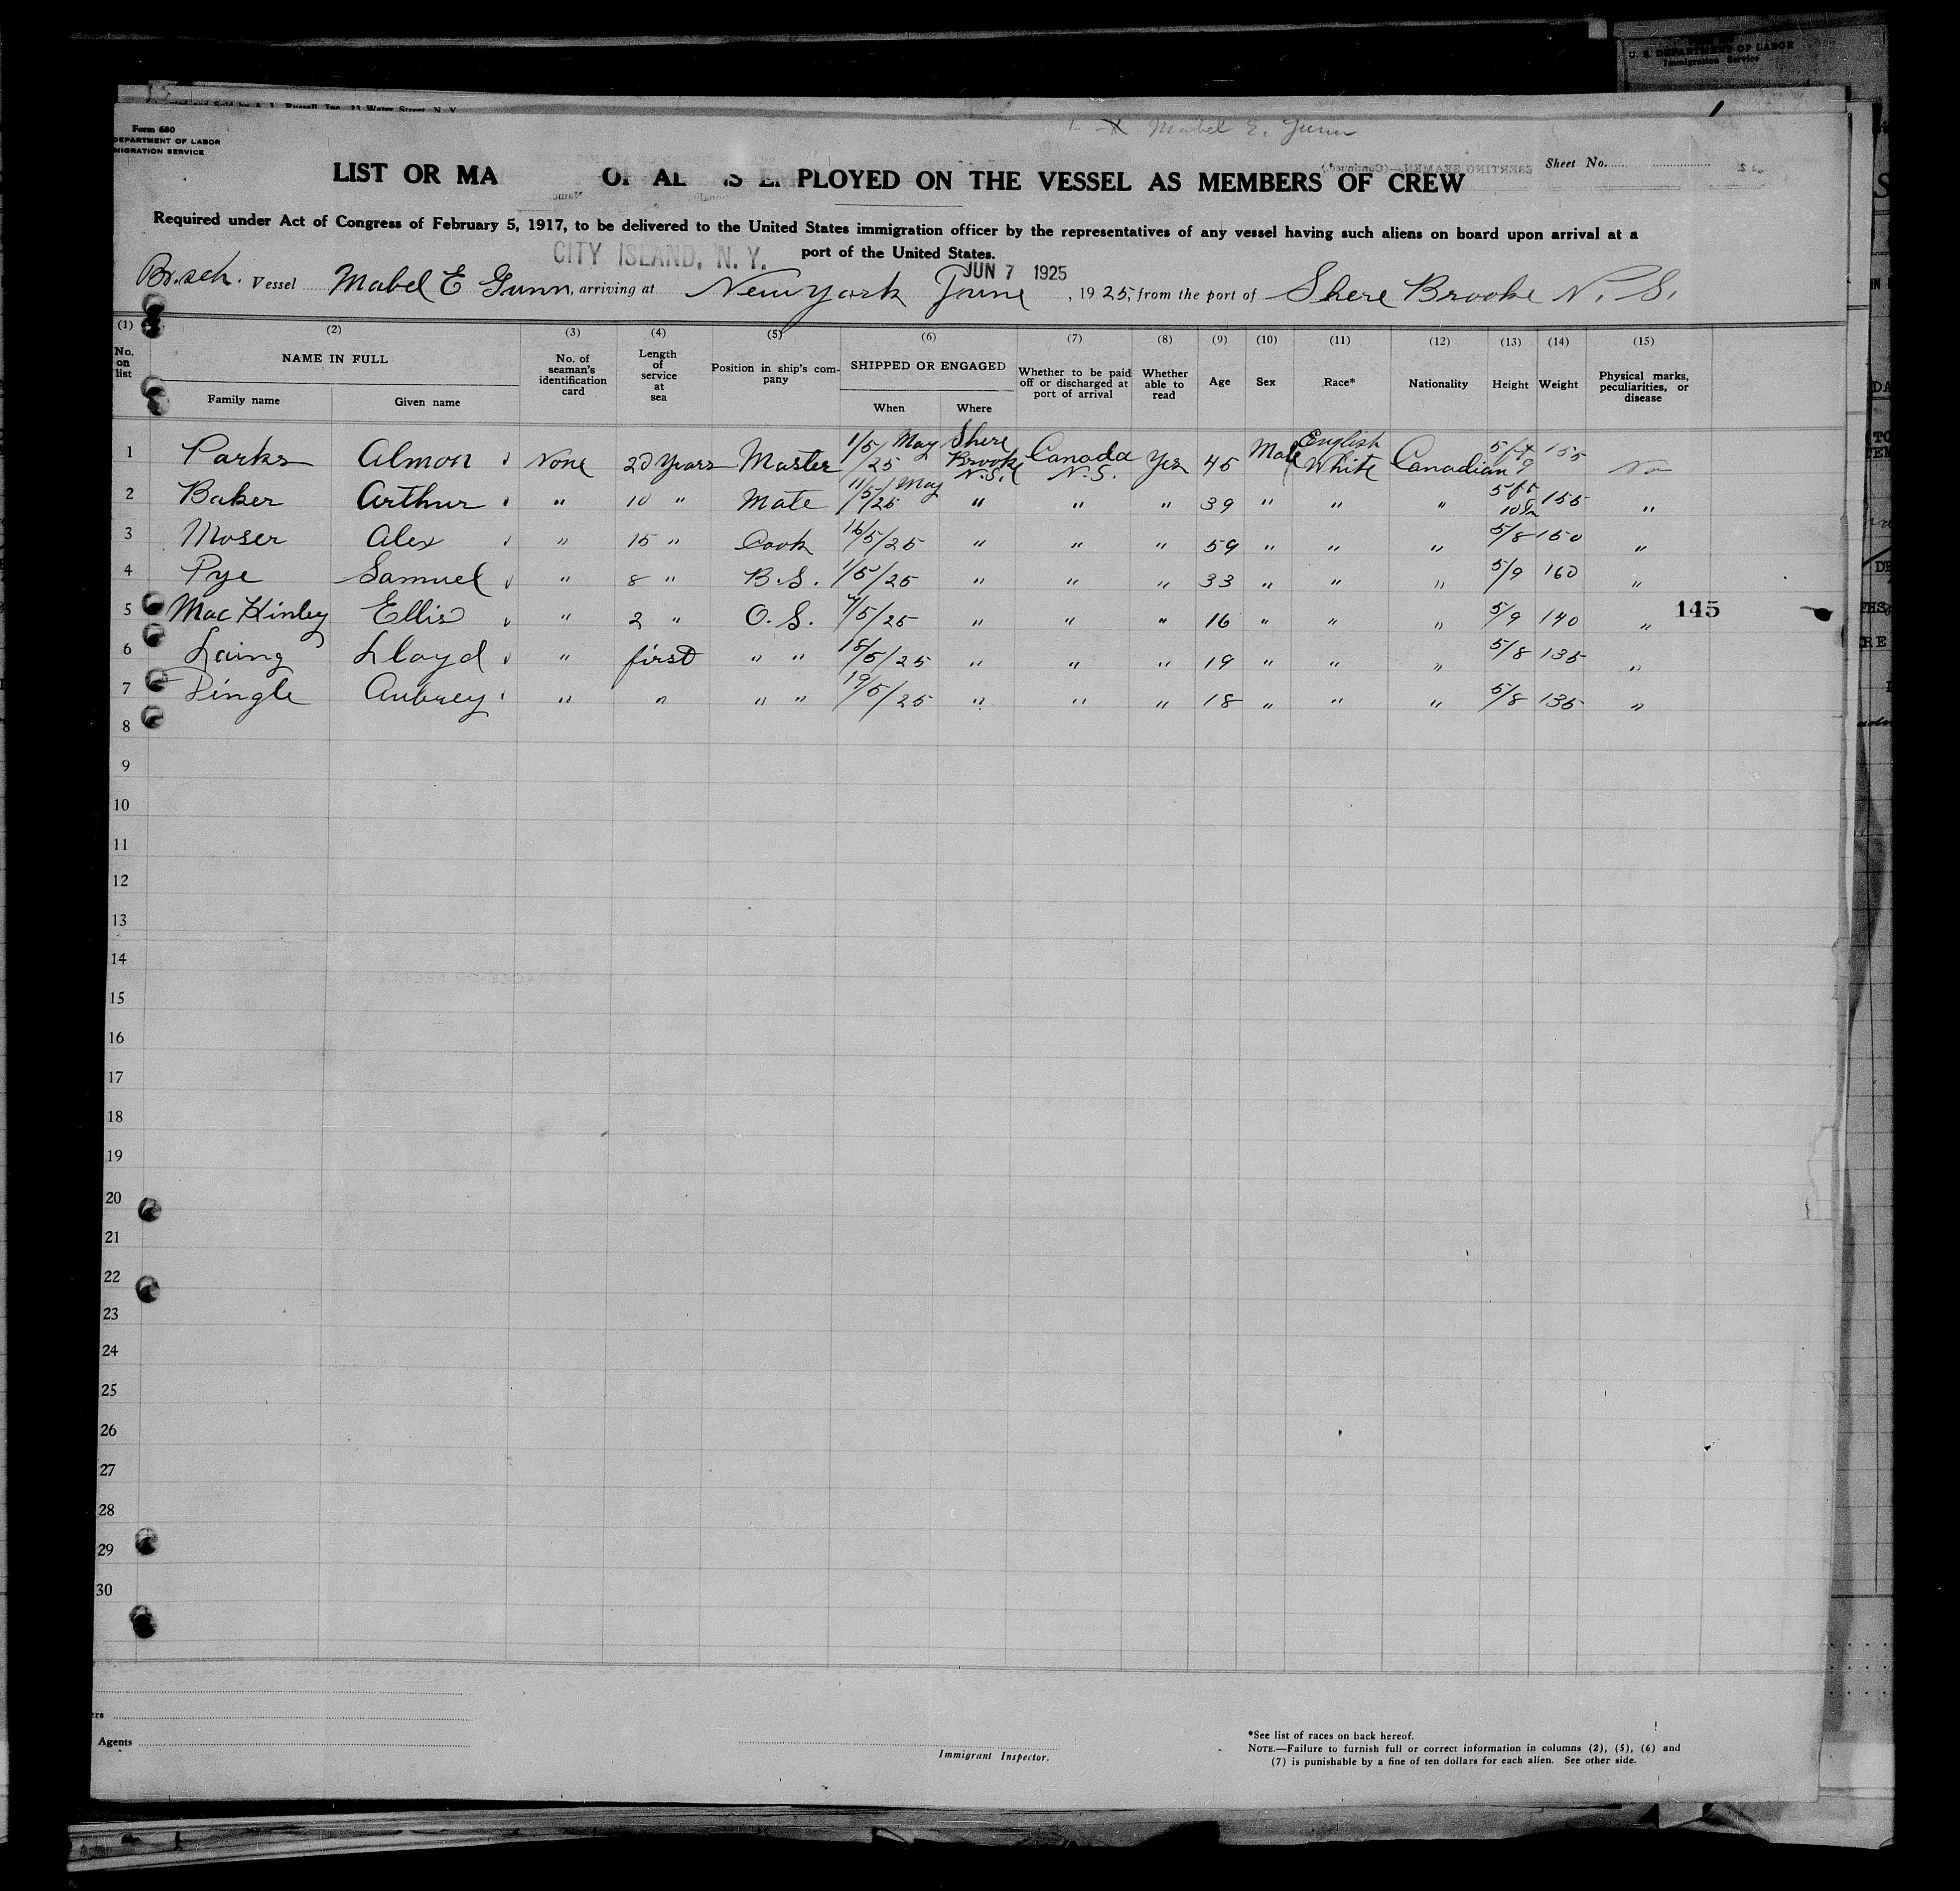 U. S. DEPARTMENT OF LABOR
Immigration Service
Form 680
DEPARTMENT OF LABOR
MIGRATION SERVICE
Mabel E. Gunn
Sheet No.
LIST OR MA OF AL S E PLOYED ON THE VESSEL AS MEMBERS OF CREW
Required under Act of Congress of February 5, 1917, to be delivered to the United States immigration officer by the representatives of any vessel having such aliens on board upon arrival at a
port of the United States.
CITY ISLAND, N. Y.
JUN 7 1925
Br. sch. Vessel Mabel E Gunn, arriving at New York June, 1925, from the port of Shere Brooke N. S.
(1) (2) (3) (4) (5) (6) (7) (8) (9) (10) (11) (12) (13) (14) (15)
No. on list NAME IN FULL No. of seaman's identification card Length of service at sea Position in ship's company SHIPPED OR ENGAGED Whether to be paid off or discharged at port of arrival Whether able to read Age Sex Race* Nationality Height Weight Physical marks, peculiarities, or disease
Family name Given name When Where
1 Parks Almon None 20 Years Master 1/5/25 May Shere Brooke N.S. Canada N.S. Yes 45 Male English White Canadian 5 ft 9 155 No
2 Baker Arthur " 10 " Mate 11/5/25 May " " " 39 " " " 5 ft 10 155 "
3 Moser Alex " 15 " Cook 16/5/25 " " " 59 " " " 5/8 150 "
4 Pye Samuel " 8 " B.S. 1/5/25 " " " 33 " " " 5/9 160 "
5 MacKinley Ellis " 2 " O.S. /5/25 " " " 16 " " " 5/9 140 " 145
6 Laing Lloyd " first " " 18/5/25 " " " 19 " " " 5/8 135 "
7 Pingle Aubrey " " " " 19/5/25 " " " 18 " " " 5/8 135 "
8
9
10
11
12
13
14
15
16
17
18
19
20
21
22
23
24
25
26
27
28
29
30
Agents
Immigrant Inspector.
*See list of races on back hereof.
NOTE.—Failure to furnish full or correct information in columns (2), (5), (6) and
(7) is punishable by a fine of ten dollars for each alien. See other side.